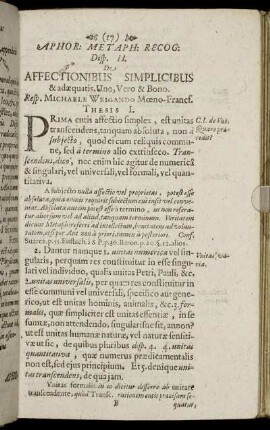 (17)
APHOR: METAPH: RECOG:
Disp. II.
De
AFFECTIONIBUS SIMPLICIBUS
& adæquatis, Uno, Vero & Bono.
Resp. MICHAELE WEIGANDO Mœno-Francf.
THESIS I.
PRIMA entis affectio simplex, est unitas
transcendens, tanquam absoluta, non à
subjecto, quod ei cum reliquis commu-
ne, sed à termino alio extrinseco. Trans-
cendens, dico, nec enim hic agitur de numericâ
& singulari, vel universali, vel formali, vel quan-
titativa.
A subjecto nulla affectio vel proprietas, potest esse
absoluta, quia omnis requirit subjectum cui insit vel conve-
niat. Absoluta autem potest esse à termino, ut non refera-
tur aliorsum vel ad aliud, tanquam terminum. Veritatem
dicunt Metaph. referri ad intellectum, bonitatem ad volun-
tatem, at ens per
2. Dantur namque 1. unitas numerica vel sin-
gularis, per quam res constituitur in esse singula-
ri vel individuo, qualis unitas Petri, Pauli, &c.
2. unitas universalis, per quam res constituitur in
esse communi vel universali, specifico aut gene-
rico, ut est unitas hominis, animalis, &c. 3. for-
malis, quæ simpliciter est unitas essentiæ, in se
sumtæ, non attendendo, singularisne sit, annon?
ut est unitas humanæ naturæ, vel naturæ sensiti-
væ ut sic, de quibus pluribus disp. 4. 4. unitas
quantitativa, quæ numerus prædicamentalis
non est, sed ejus principium. Et 5. denique uni-
tas transcendens, de qua jam.
Unitas formalis in eo dicitur differre ab unitate
transcendente, quod Transc.
B